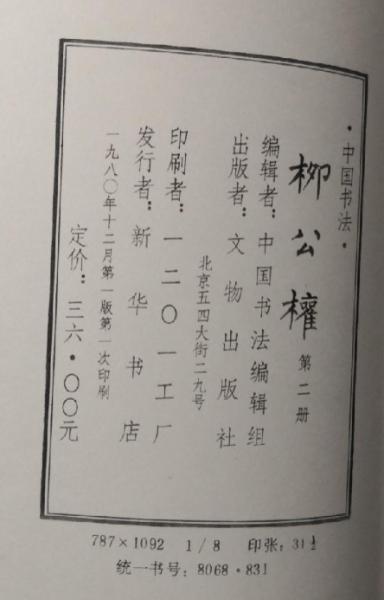 ·中国书法·
柳公權 第二册
编辑者：中国书法编辑组
出版者：文物出版社
北京五四大街二九号
印刷者：一二〇一工厂
发行者：新华书店
一九八〇年十二月第一版第一次印刷
定价：三六·〇〇元
787×1092 1/8 印张：31½
统一书号：8068·831